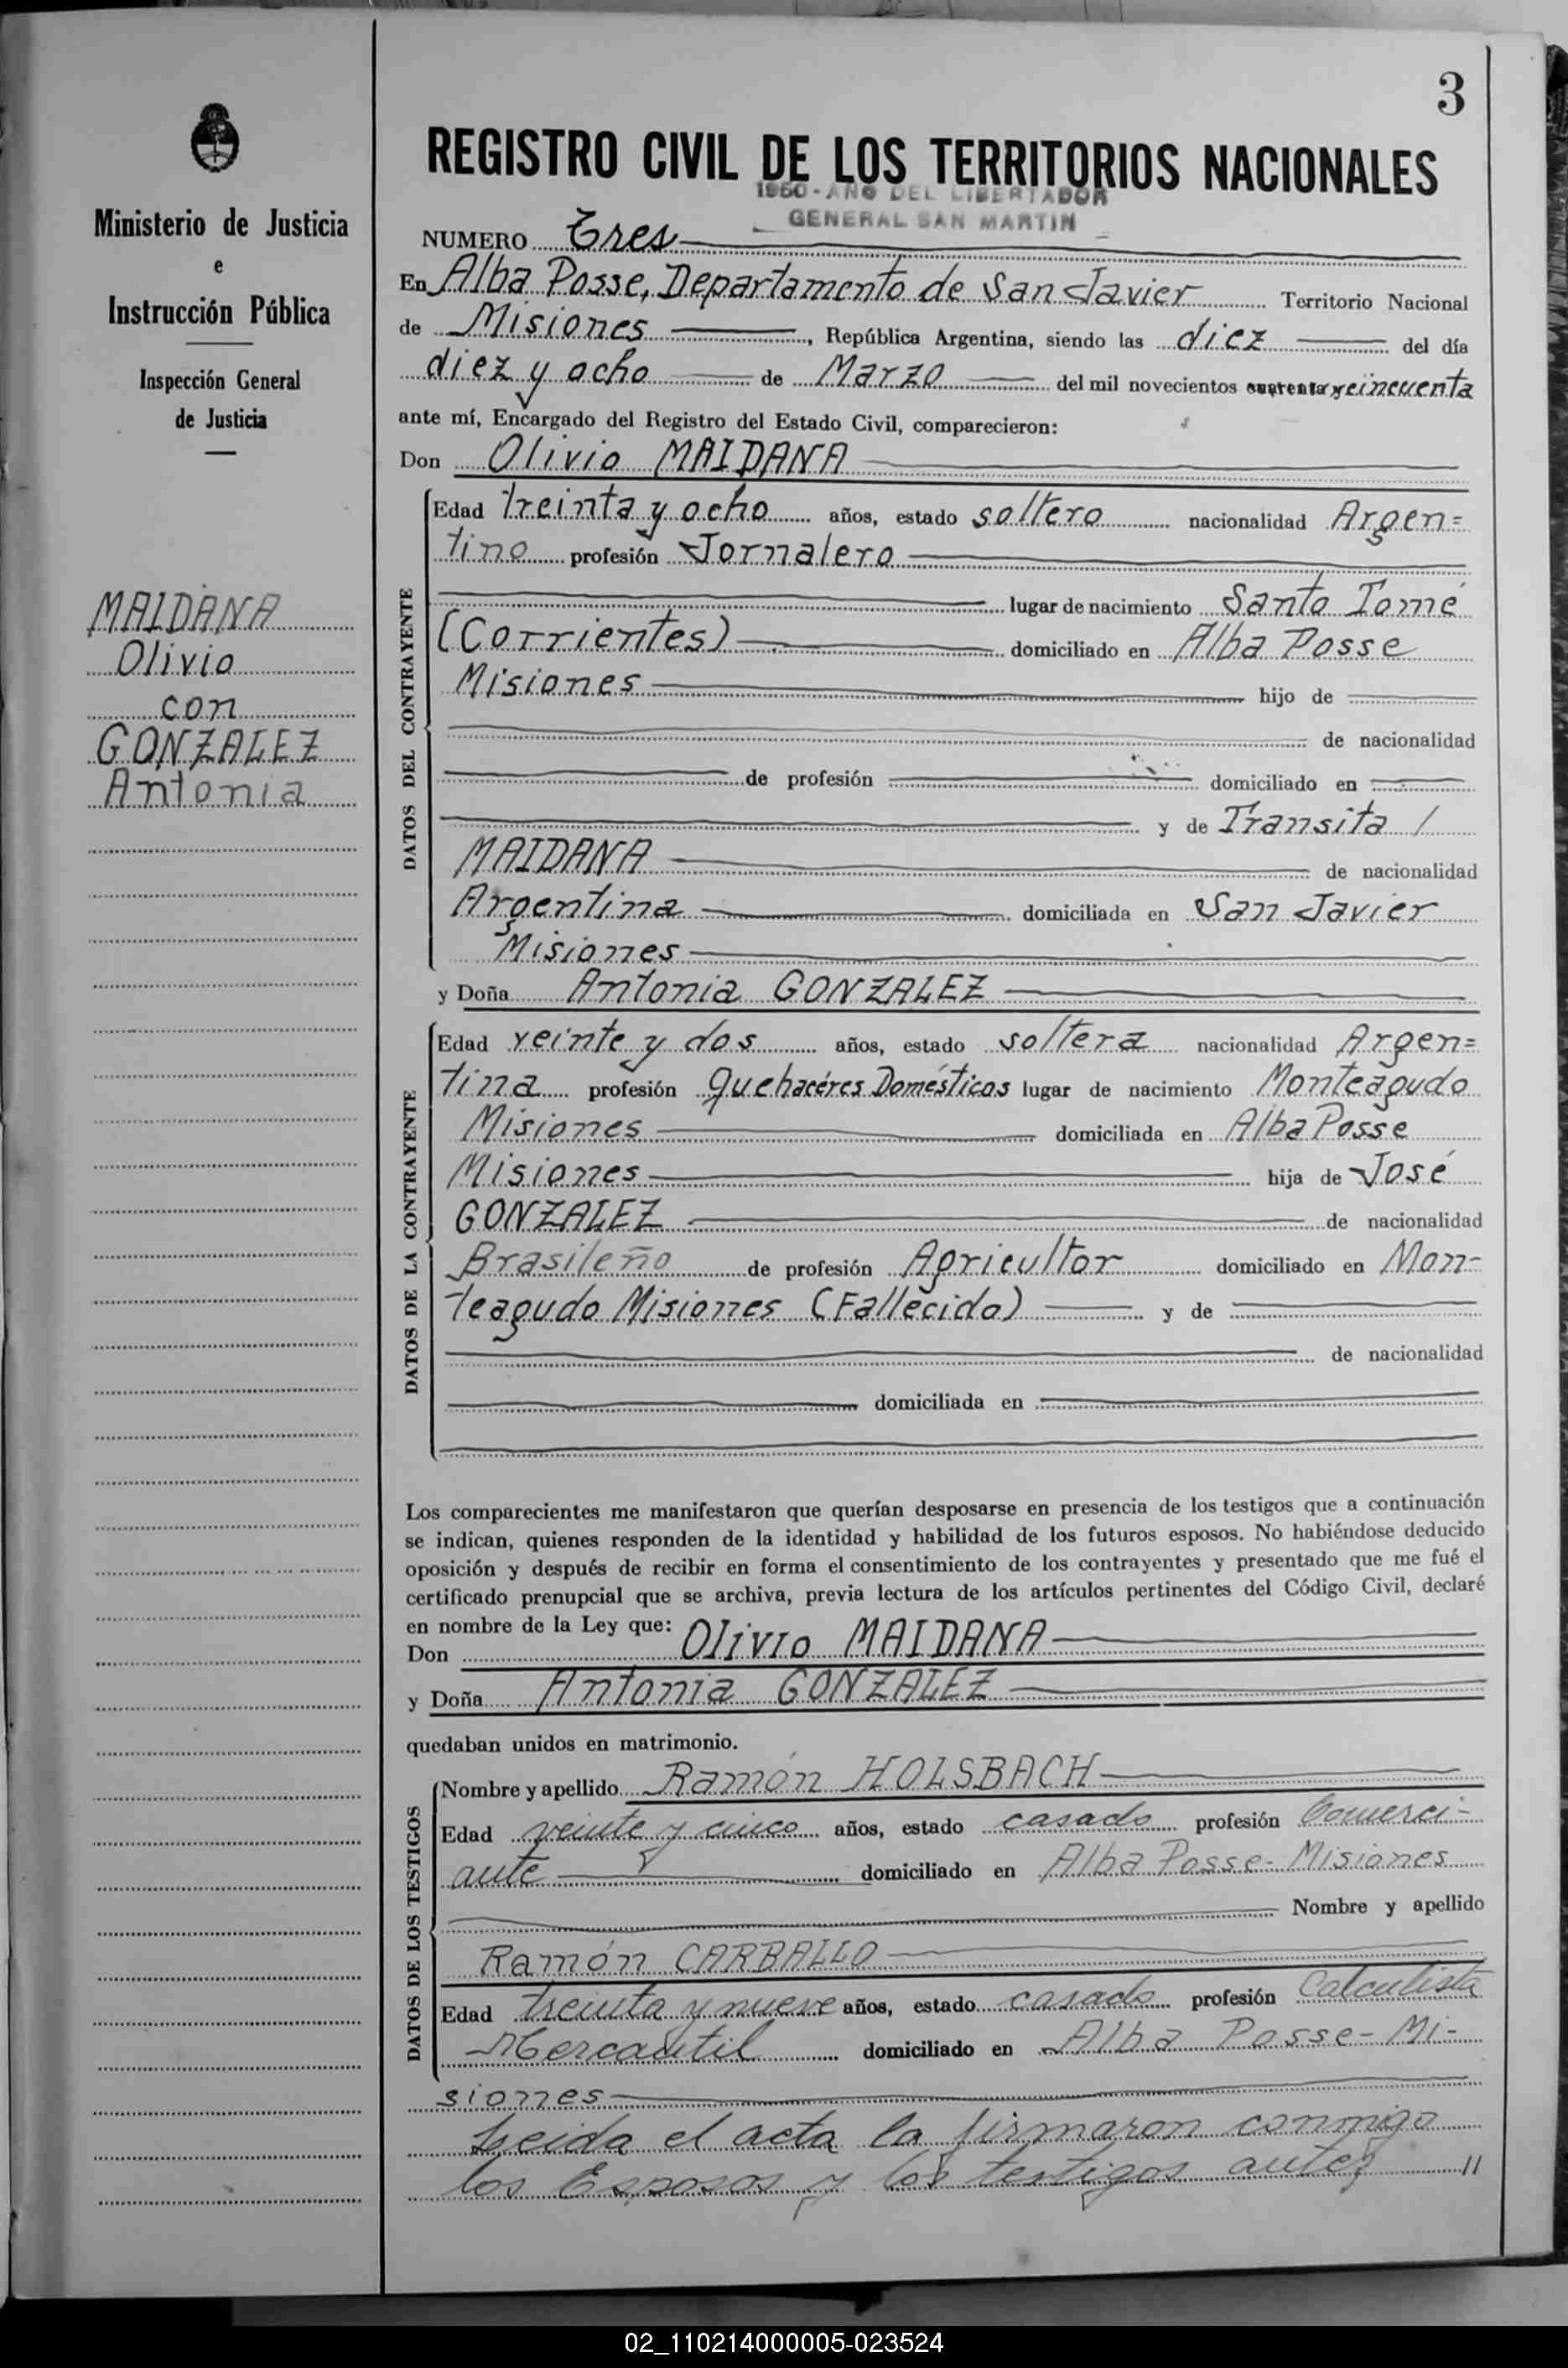 3
Ministerio de Justicia
e
Instrucción Pública
Inspección General
de Justicia
MAIDANA
Olivio
con
GONZALEZ
Antonia
REGISTRO CIVIL DE LOS TERRITORIOS NACIONALES
1950 - AÑO DEL LIBERTADOR
GENERAL SAN MARTIN
NUMERO Tres
En Alba Posse, Departamento de San Javier Territorio Nacional
de Misiones, República Argentina, siendo las diez del día
diez y ocho de Marzo del mil novecientos cuarenta y cincuenta
ante mí, Encargado del Registro del Estado Civil, comparecieron:
Don Olivio MAIDANA
DATOS DEL CONTRAYENTE
Edad treinta y ocho años, estado soltero nacionalidad Argen=
tino profesión Jornalero
lugar de nacimiento Santo Tomé
(Corrientes) domiciliado en Alba Posse
Misiones hijo de
de nacionalidad
de profesión domiciliado en
y de Transita /
MAIDANA de nacionalidad
Argentina domiciliada en San Javier
Misiones
y Doña Antonia GONZALEZ
DATOS DE LA CONTRAYENTE
Edad veinte y dos años, estado soltera nacionalidad Argen=
tina profesión Quehacéres Domésticos lugar de nacimiento Monteagudo
Misiones domiciliada en Alba Posse
Misiones hija de José
GONZALEZ de nacionalidad
Brasileño de profesión Agricultor domiciliado en Mon-
teagudo Misiones (Fallecido) y de
de nacionalidad
domiciliada en
Los comparecientes me manifestaron que querían desposarse en presencia de los testigos que a continuación
se indican, quienes responden de la identidad y habilidad de los futuros esposos. No habiéndose deducido
oposición y después de recibir en forma el consentimiento de los contrayentes y presentado que me fué el
certificado prenupcial que se archiva, previa lectura de los artículos pertinentes del Código Civil, declaré
en nombre de la Ley que:
Don Olivio MAIDANA
y Doña Antonia GONZALEZ
quedaban unidos en matrimonio.
DATOS DE LOS TESTIGOS
Nombre y apellido Ramón HOLSBACH
Edad veinte y cinco años, estado casado profesión Comerci-
ante domiciliado en Alba Posse - Misiones
Nombre y apellido
Ramón CARBALLO
Edad treinta y nueve años, estado casado profesión Calculista
Mercantil domiciliado en Alba Posse - Mi-
siones
Leida el acta la firmaron conmigo
los Esposos y los testigos antes //
02_110214000005-023524